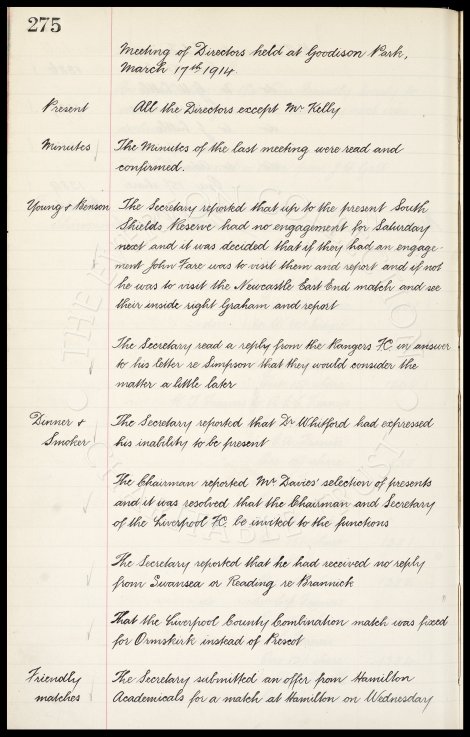 275
Meeting of Directors held at Goodison Park,
March 17th 1914.
Present All the Directors except Mr Kelly
Minutes The Minutes of the last meeting were read and
confirmed.
Young & Benson The Secretary reported that up to the present South
Shields Reserve had no engagement for Saturday
next and it was decided that if they had an engage-
ment John Fare was to visit them and report and if not
he was to visit the Newcastle East End match and see
their inside right Graham and report
The Secretary read a reply from the Rangers F.C. in answer
to his letter re Simpson that they would consider the
matter a little later
Dinner & The Secretary reported that Dr Whitford had expressed
Smoker his inability to be present
The Chairman reported Mr Davies' selection of presents
and it was resolved that the Chairman and Secretary
of the Liverpool F.C. be invited to the functions
The Secretary reported that he had received no reply
from Swansea or Reading re Brannick
That the Liverpool County Combination match was fixed
for Ormskirk instead of Prescot
Friendly The Secretary submitted an offer from Hamilton
matches Academicals for a match at Hamilton on Wednesday